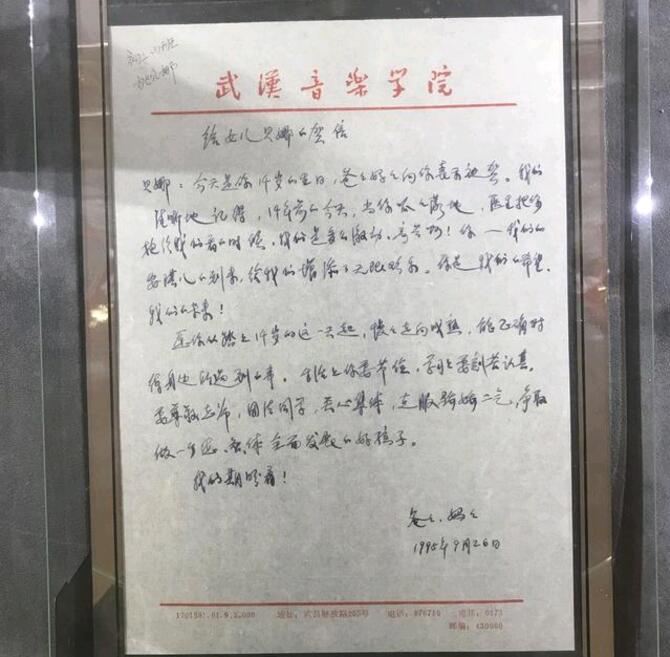 姚贝娜
武漢音樂学院
给女儿贝娜的贺信
贝娜:今天是你14岁的生日,爸爸妈妈向你表示祝贺。我们
清晰地记得,14年前的今天,当你呱呱落地,医生把你
抱给我们看的时候,我们是多么激动,高兴啊!你—我们的
安琪儿的到来,给我们增添了无限欢乐。你是我们的希望,
我们的未来!
愿你从踏上14岁的这一天起,慢慢走向成熟,能正确对
待身边所遇到的事。生活上你要节俭,学习上要刻苦认真。
要尊敬老师,团结同学,关心集体,克服骄娇二气,争取
做一个德、智、体全面发展的好孩子。
我们期盼着!
爸爸、妈妈
1995年9月26日
地址:武昌解放路255号 电话:876710 电挂:0173
邮编:430060